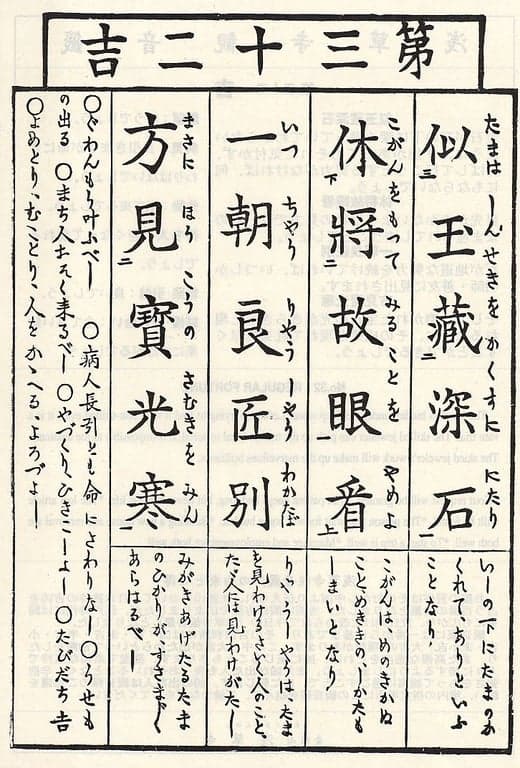 第三十二吉
たまは しんせきを かくすに にたり
似三玉藏二深石一
いしの下にたまのか
くれて といふ
ことなり、
こがんをもつて みることを やめよ
休下將二故眼一看
こがんは、めのきかぬ
こと、めききの、しかたも
しまいとなり、
いつ ちやう りやう しやう わかたば
一朝良匠別
りやうしやうは、たま
を見わけるさいく人のこと、
たゞ人には見わけがたし
まさに ほうくわうの さむきを みん
方見二寶光寒
みがきあげたるたま
のひかりが、すさまじく
あらはるべし
○ぐわんもう叶ふべし ○病人長引とも命にさわりなし○うせも
の出る ○まち人おそく来るべし ○やづくりひきこしよし ○たびだち吉
○よめとり、むことり、人をかゝへるよろづよし